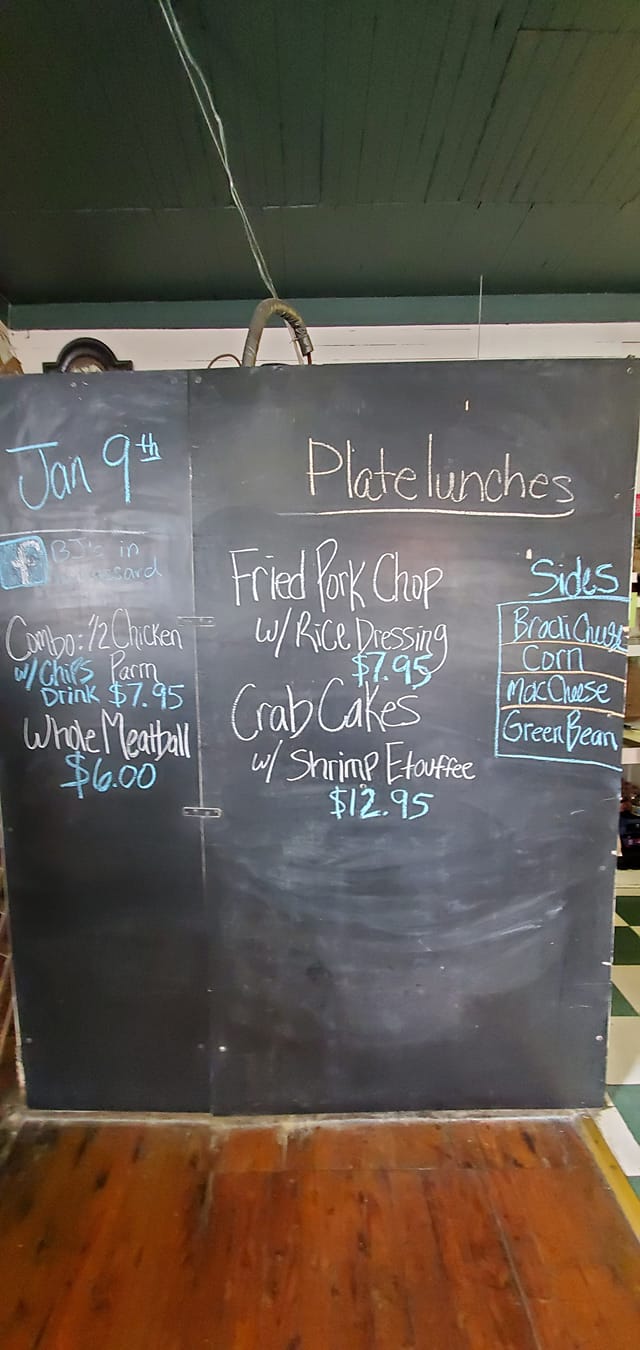 Jan 9th
f BJ's in
Combo: 1/2 Chicken
w/ Chips Parm
Drink $7.95
Whole Meatball
$6.00
Plate lunches
Fried Pork Chop
w/ Rice Dressing
$7.95
Crab Cakes
w/ Shrimp Etouffee
$12.95
Sides
Corn
Mac Cheese
Green Bean